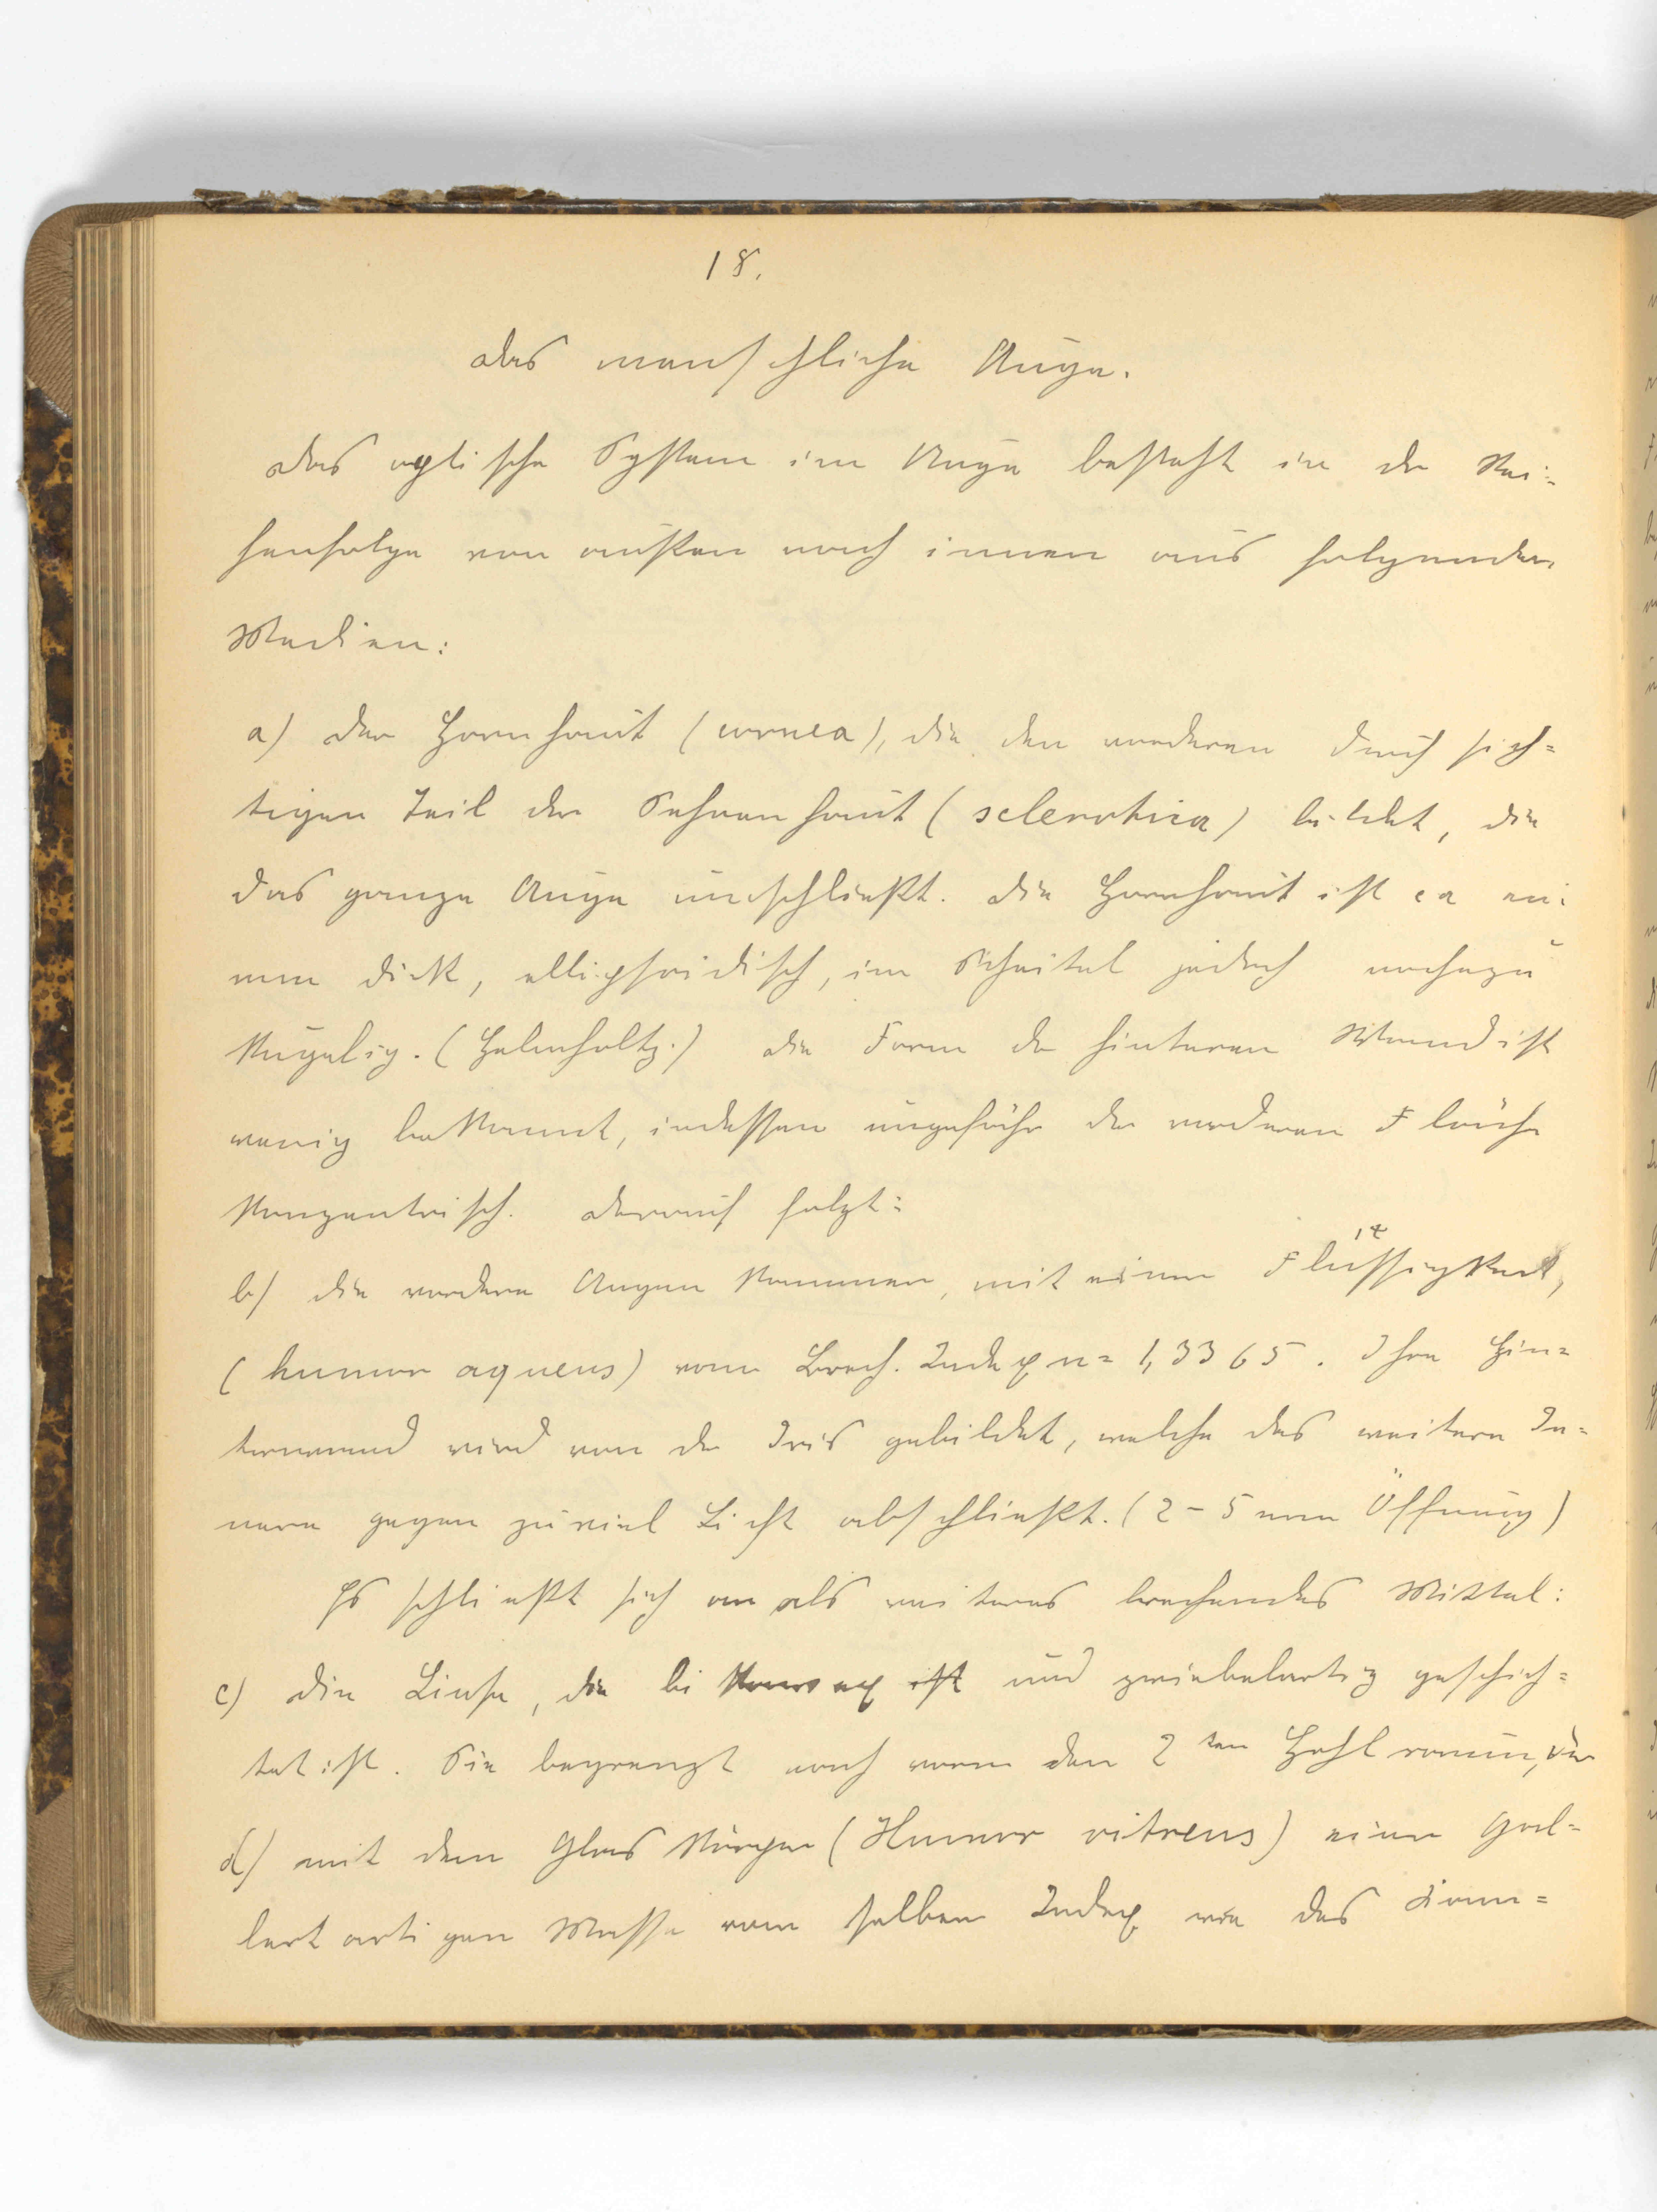 18.
Das menschliche Auge.
Das optische System im Auge besteht in der Rei=
henfolge von außen nach innen aus folgenden
Medien:
a) Der Hornhaut (cornea), die den vorderen durchsich=
tigen Teil der Sehnenhaut (sclerotica) bildet, die
das ganze Auge umschließt. Die Hornhaut ist ca ein
mm dick, ellipsoidisch, im Scheitel jedoch nahezu
kugelig. (Helmholtz.) Die Form der hinteren Wand ist
wenig bekannt, indessen ungefähr der vorderen Fläche
konzentrisch. Darauf folgt:
b) die vordere Augenkammer, mit einer Flüssigkeit,
(humor aqueus) vom Brech. Index n = 1,3365. Ihre Hin=
terwand wird von der Iris gebildet, welche das weitere In=
nere gegen zuviel Licht abschließt. (2 - 5 mm Öffnung)
Es schließt sich an als weiteres brechendes Mittel:
c) Die Linse, die bikonvex ist und zwiebelartig geschich=
tet ist. Sie begrenzt nach vorn den 2ten Hohlraum, der
d) mit dem Glaskörper (Humor vitreus) einer gal=
lertartigen Masse vom selben Index wie das